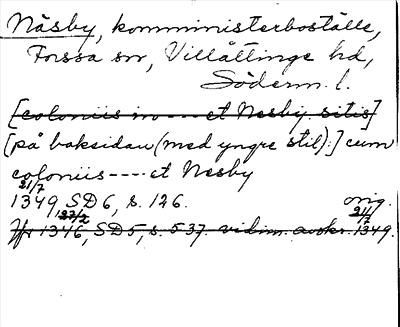 Näsby, komministerboställe,
Forssa sn, Villåttinge hd,
Söderm. l.
[coloniis in ---- et Nesby sitis]
[på baksidan (med yngre stil):] cum
coloniis ---- et Nesby
21/7
1349 SD 6, s. 126. orig.
Jfr 1346 22/2, SD 5, s. 537. vidim. avskr. 21/7 1349.